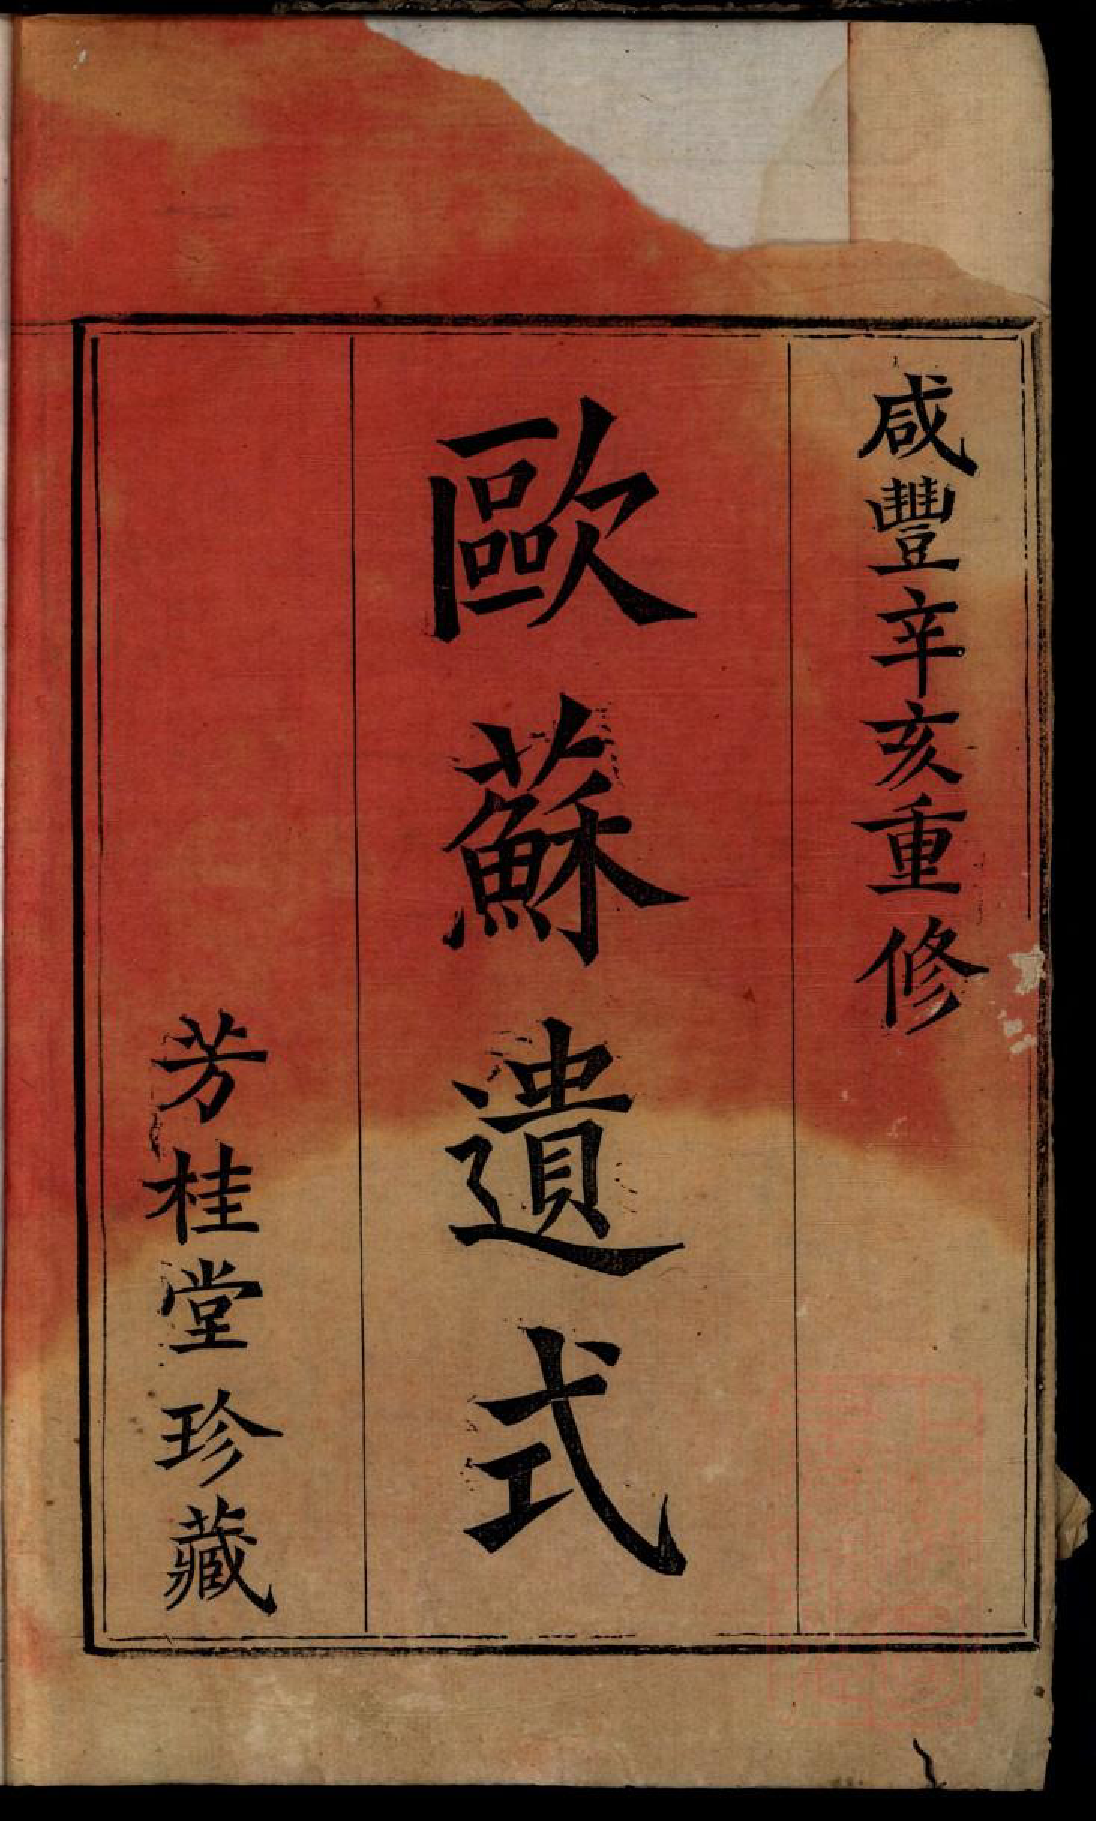 咸豐辛亥重修
歐蘇遺式
芳桂堂珍藏